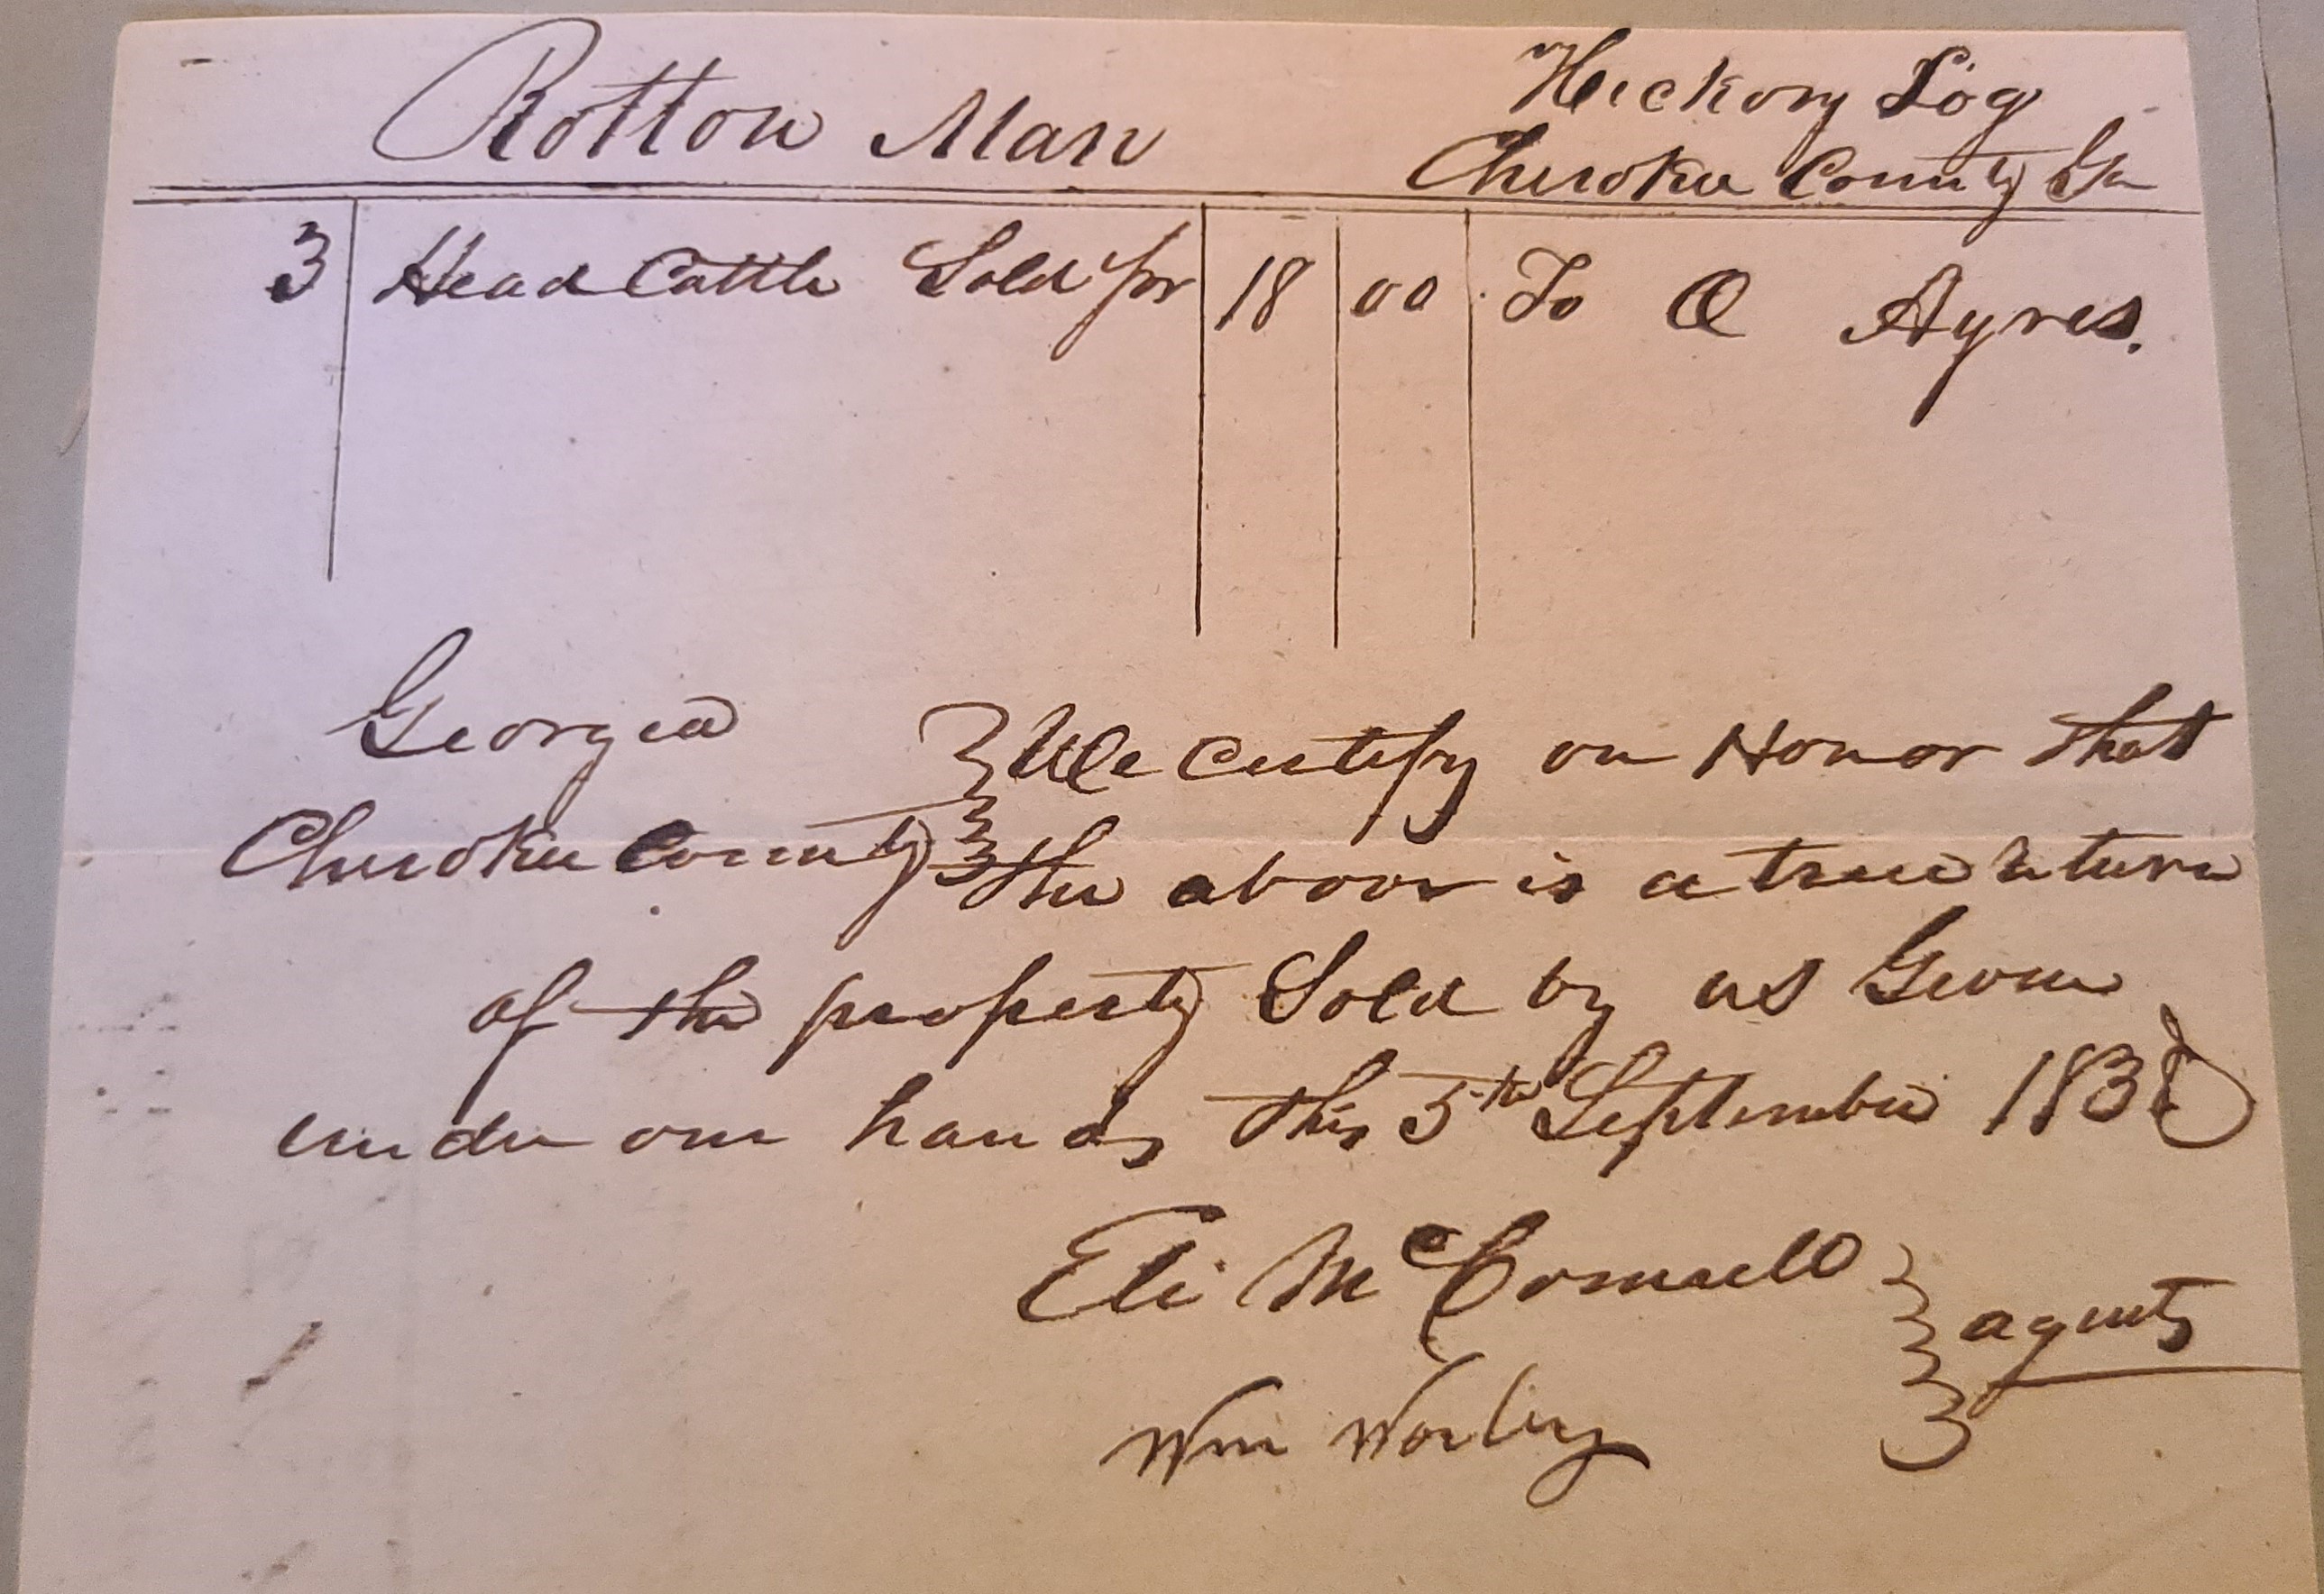 Rotton Man
Hickory Log
Cherokee County Ga
3 Head Cattle Sold for 18 00 To O Ayres.
Georgia
Cherokee County
We certify on Honor that
the above is a true return
of the property Sold by us Given
under our hands this 5th September 1838
Eli McConnell
Wm Worley
agents